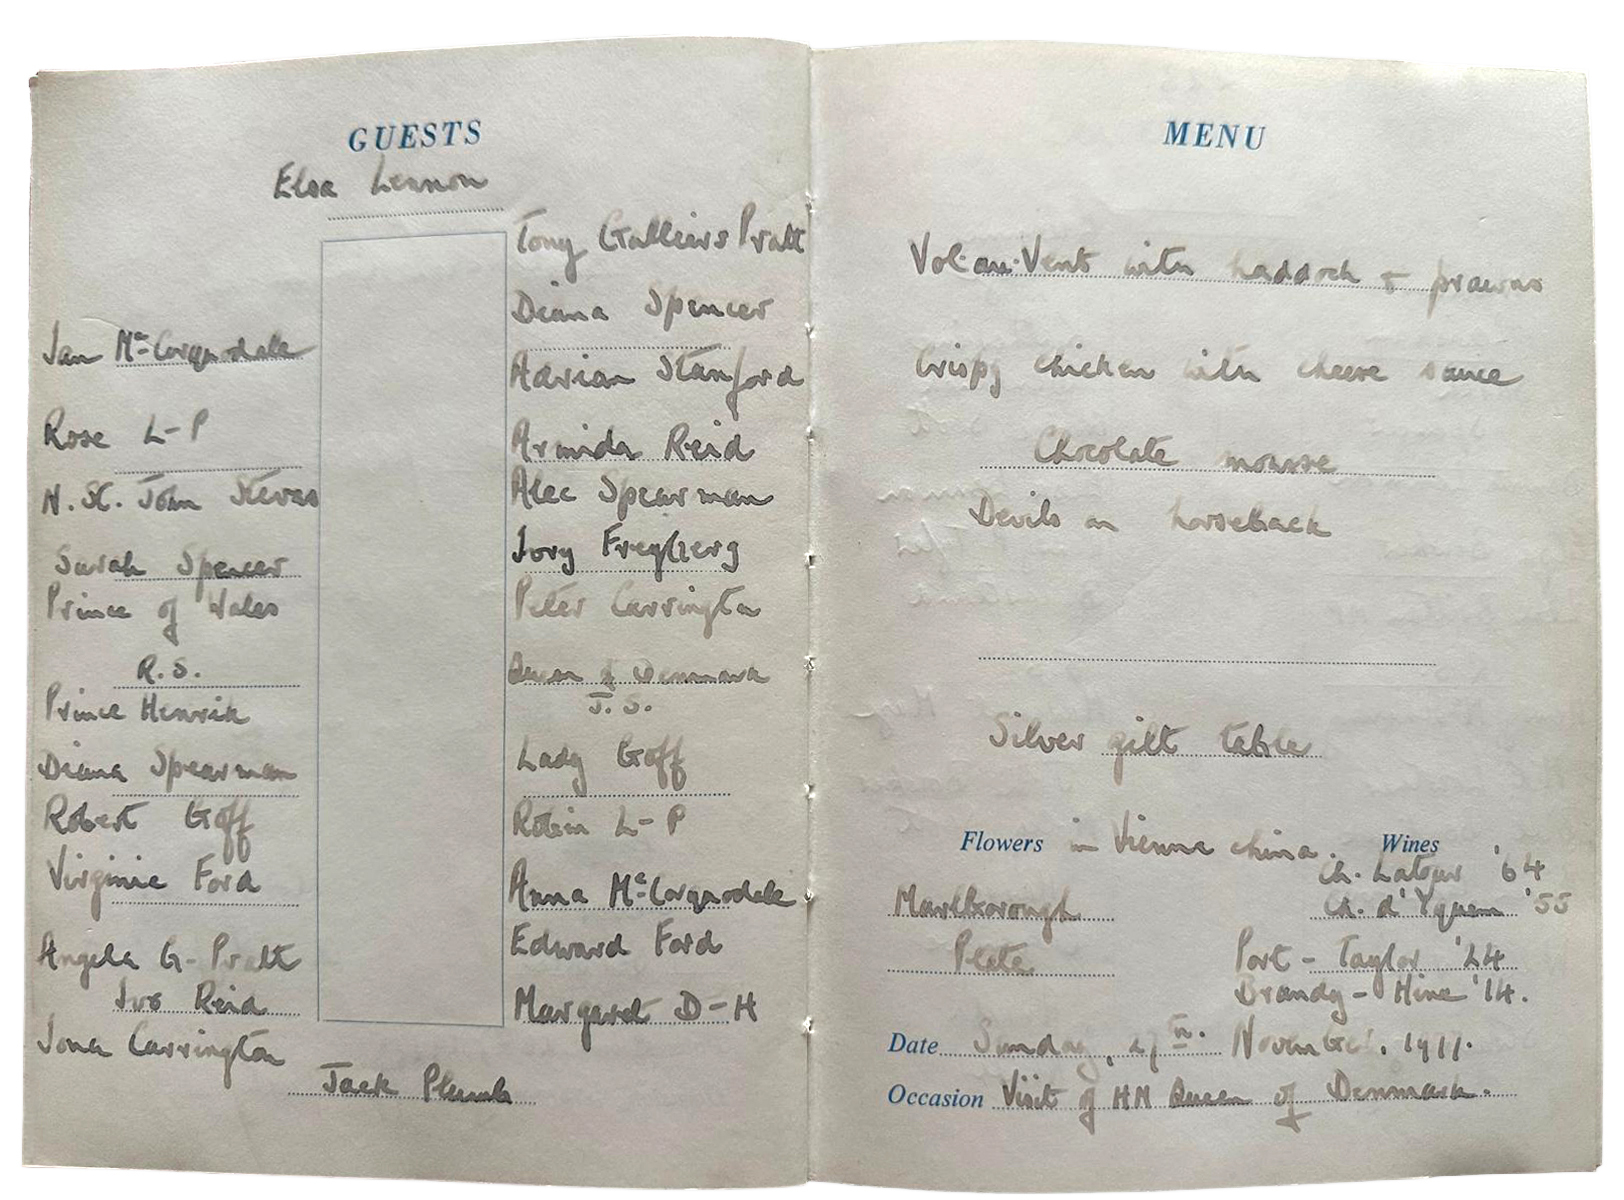 GUESTS
Elsa Lennon
Jan Mc-Corquodale
Rose L-P
N. St. John Stevas
Sarah Spencer
Prince of Wales
R.S.
Prince Henrik
Diana Spearman
Robert Goff
Virginia Ford
Angela G-Pratt
Ivo Reid
Iona Carrington
Jack Plumb
Tony Galliers Pratt
Diana Spencer
Adrian Stanford
Armida Reid
Alec Spearman
Jory
Peter Carrington
Queen of Denmark
J.S.
Lady Goff
Robin L-P
Anna Mc-Corquodale
Edward Ford
Margaret D-H
MENU
Vol-au-Vent with haddock & prawns
Crispy chicken with cheese sauce
Chocolate mousse
Devils on horseback
Silver gilt table
Flowers in Vienna china.
Marlborough
Plate
Wines
Ch. Latour '64
Ch. d'Yquem '55
Port - Taylor '24
Brandy - Hine '14.
Date Sunday, 27th. November. 1977.
Occasion Visit of HM Queen of Denmark.